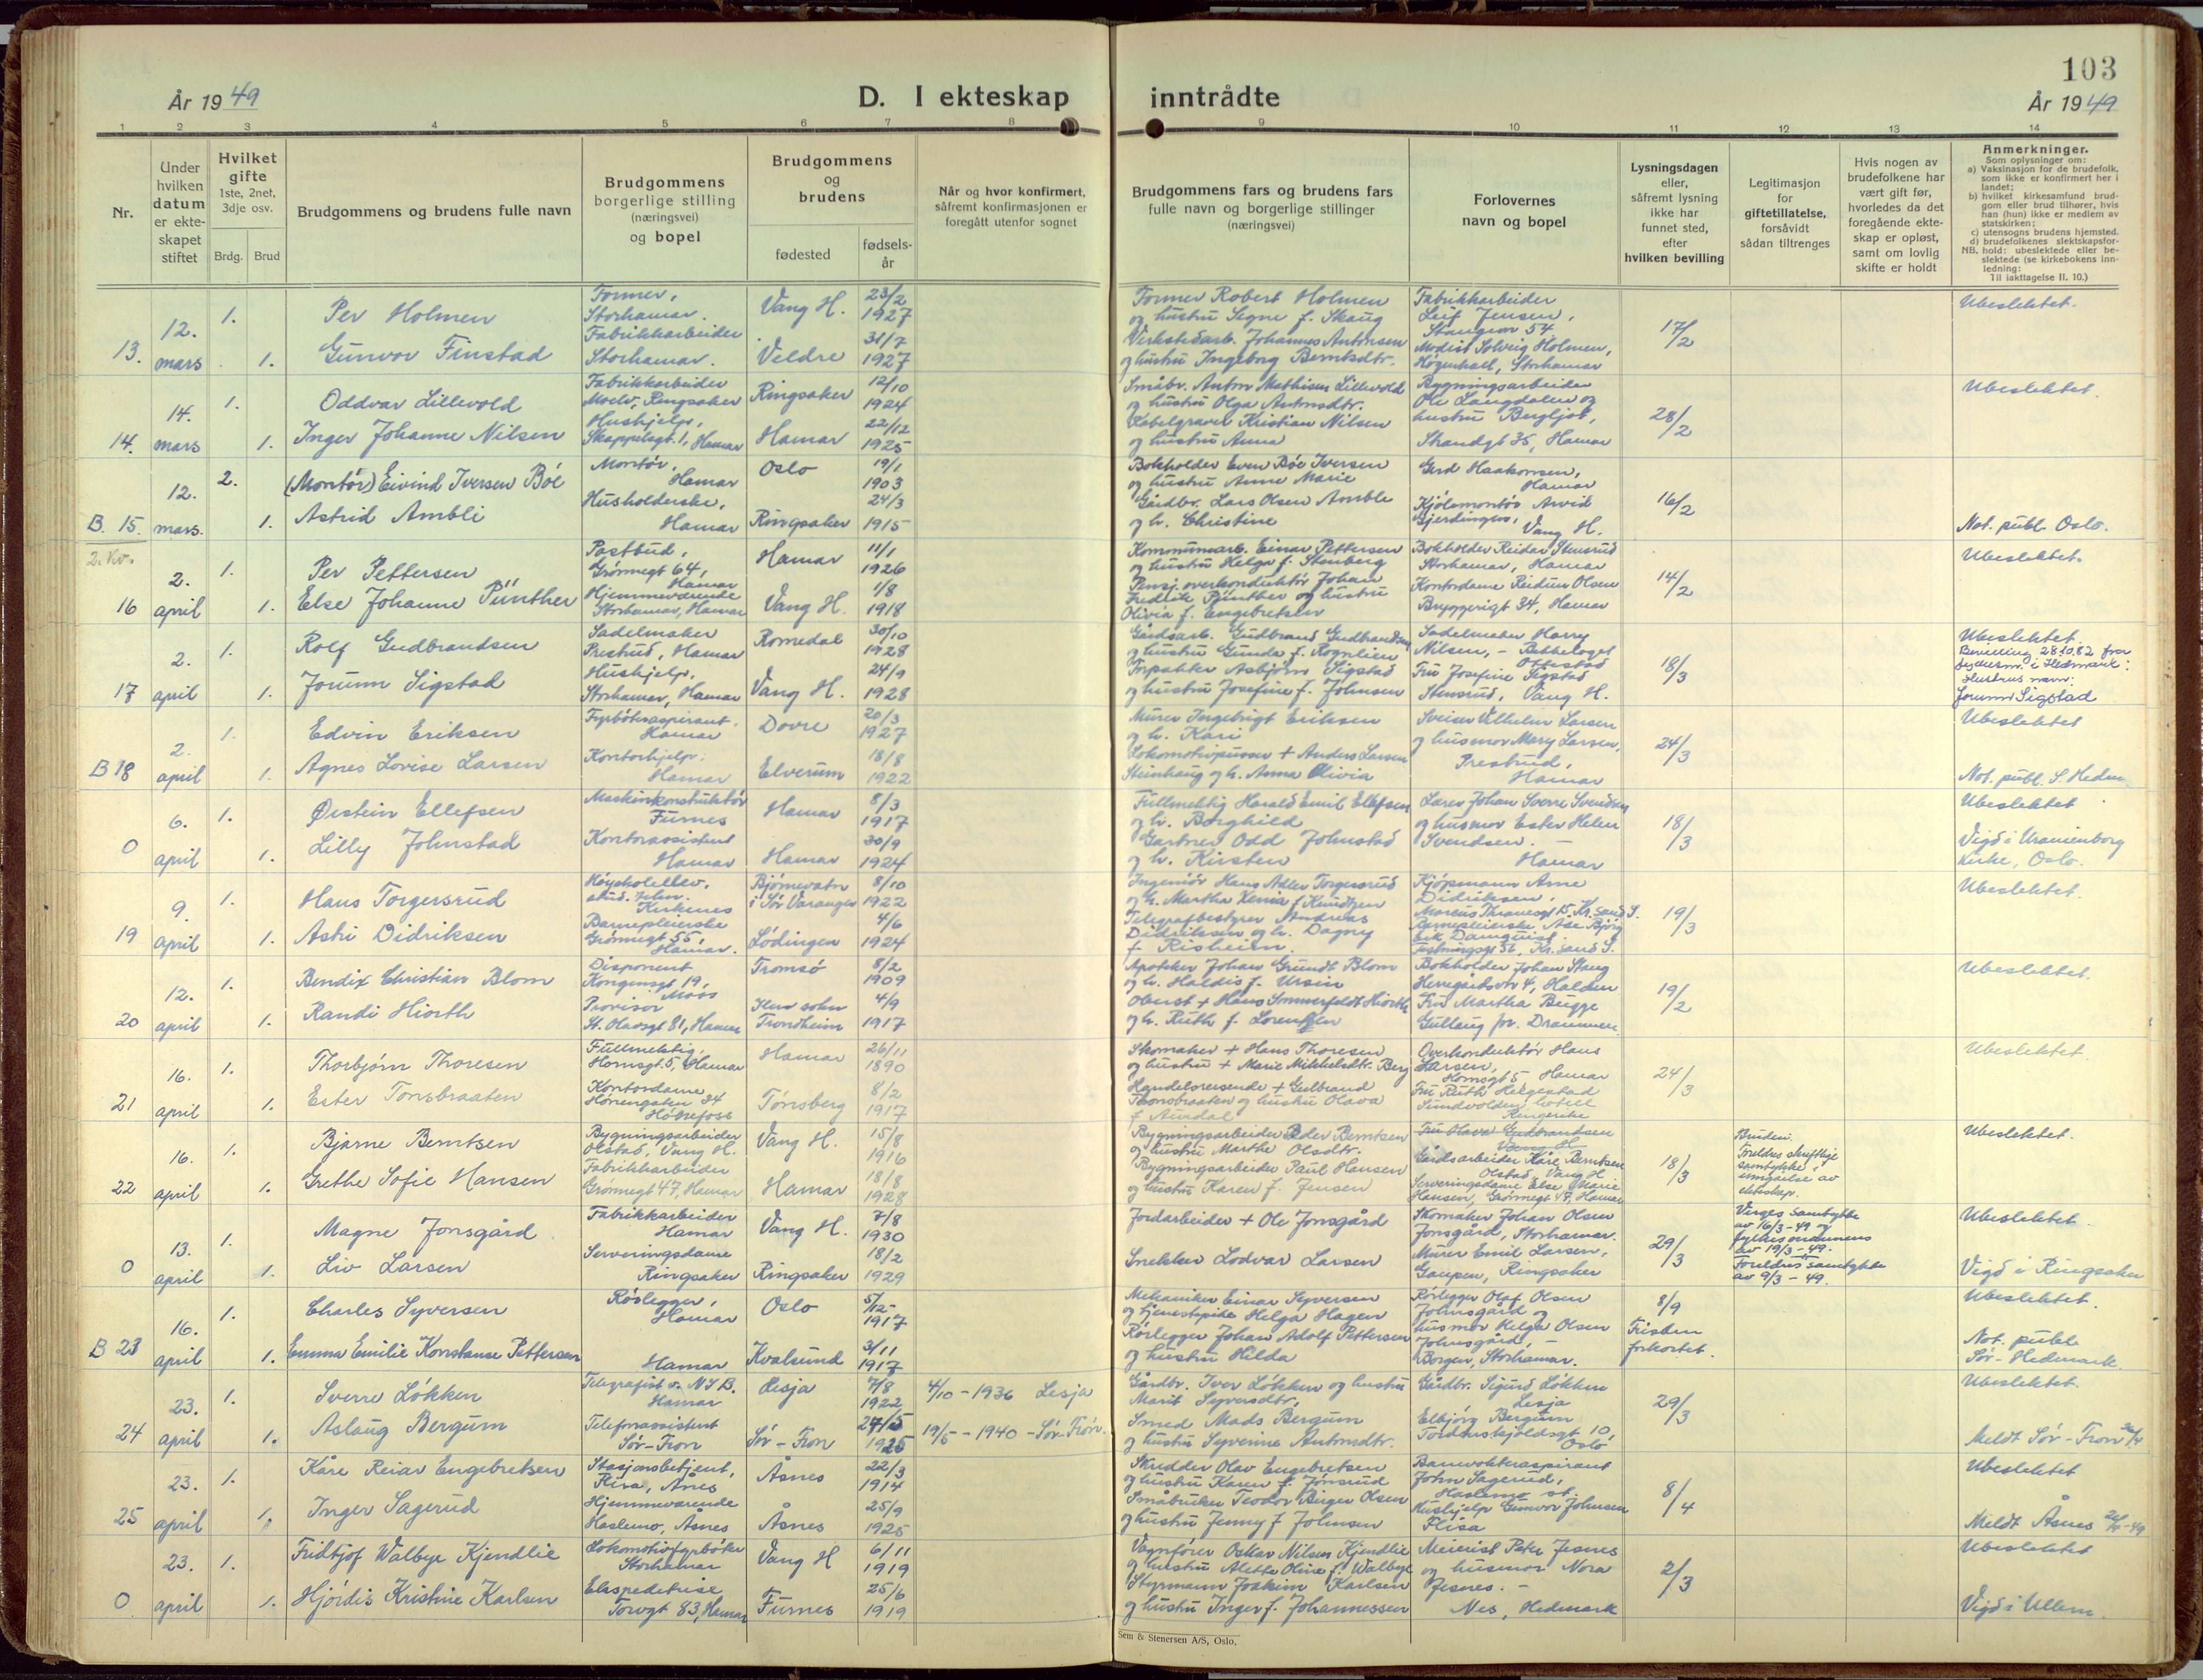 103
År 1949
D. I ekteskap
inntrådte
År 1949
1 2 3 4 5 6 7 8 9 10 11 12 13 14
Nr.
Under
hvilken
datum
er ekte-
skapet
stiftet
Hvilket
gifte
1ste, 2net,
3dje osv.
Brdg. Brud
Brudgommens og brudens fulle navn
Brudgommens
borgerlige stilling
(næringsvei)
og bopel
Brudgommens
og
brudens
fødested
fødsels-
år
Når og hvor konfirmert,
såfremt konfirmasjonen er
foregått utenfor sognet
Brudgommens fars og brudens fars
fulle navn og borgerlige stillinger
(næringsvei)
Forlovernes
navn og bopel
Lysningsdagen
eller,
såfremt lysning
ikke har
funnet sted,
efter
hvilken bevilling
Legitimasjon
for
giftetillatelse,
forsåvidt
sådan tiltrenges
Hvis nogen av
brudefolkene har
vært gift før,
hvorledes da det
foregående ekte-
skap er opløst,
samt om lovlig
skifte er holdt
Anmerkninger.
Som oplysninger om:
a) Vaksinasjon for de brudefolk,
som ikke er konfirmert her i
landet;
b) hvilket kirkesamfund brud-
gom eller brud tilhører, hvis
han (hun) ikke er medlem av
statskirken;
c) utensogns brudens hjemsted.
d) brudefolkenes slektskapsfor-
NB. hold: ubeslektede eller be-
slektede (se kirkebokens inn-
ledning:
Til iakttagelse II. 10.)
13. 12. mars 1. 1.
Per Holmen
Gunvor Finstad
Former,
Storhamar.
Fabrikkarbeider
Storhamar.
Vang H. 23/2 1927
Veldre 31/7 1927
Former Robert Holmen
og hustru Signe f. Skaug
Verkstedarb. Johannes Antonsen
og hustru Ingeborg Berntsdtr.
Fabrikkarbeider
Leif Jensen,
Stangevn 54
Modist Solveig Holmen,
Storhamar
17/2
Ubeslektet.
14. 14. mars 1. 1.
Oddvar Lillevold
Inger Johanne Nilsen
Fabrikkarbeider
Moelv, Ringsaker
Hushjelp,
Skappelsgt. 1, Hamar
Ringsaker 12/10 1924
Hamar 22/12 1925
Småbr. Anton Mathisen Lillevold
og hustru Olga Antonsdtr.
Kabelgraver Kristian Nilsen
og hustru Anna
Bygningsarbeider
Ole Langdalen og
hustru Bergljot,
Strandgt 35, Hamar
28/2
Ubeslektet.
B. 15. 12. mars. 2. 1.
(Montør) Eivind Iversen Bøe
Astrid Ambli
Montør,
Hamar
Husholderske,
Hamar
Oslo 19/1 1903
Ringsaker 24/3 1915
Bokholder Even Bøe Iversen
og hustru Anne Marie
Gårdbr. Lars Olsen Amble
og h. Christine
Gerd Haakonsen,
Hamar
Kjølemontør Arvid
Gjerdingen,
Vang H.
16/2
Not. publ. Oslo.
2. Kv.
16 2. april 1. 1.
Per Pettersen
Else Johanne Pünther
Postbud,
Grønnegt 64,
Hamar
Hjemmeværende
Storhamar, Hamar
Hamar 11/1 1926
Vang H. 1/8 1918
Kommunearb. Einar Pettersen
og hustru Helga f. Stenberg
Pensj. overkonduktør Johan
Fredrik Pünther og hustru
Olivia f. Engebretsen
Bokholder Reidar Stensrud
Storhamar, Hamar
Kontordame Reidun Olsen
Bryggerigt 34, Hamar
14/2
Ubeslektet.
17 2. april 1. 1.
Rolf Gudbrandsen
Jorunn Sigstad
Sadelmaker
Prestrud, Hamar
Hushjelp,
Storhamar, Hamar
Romedal 30/10 1928
Vang H. 24/9 1928
Gårdsarb. Gudbrand Gudbrandsen
og hustru Gunda f. Rognlien
Forpakter Asbjørn Sigstad
og hustru Josefine f. Johnsen
Sadelmaker Harry
Nilsen, - Bekkelaget
Ottestad
Fru Josefine Sigstad
Stensrud, Vang H.
18/3
Ubeslektet.
Bevilling 28.10.82 fra
fylkesm. i Hedmark:
Hustrus navn:
Jorunn Sigstad
B 18 2. april 1. 1.
Edvin Eriksen
Agnes Lovise Larsen
Fyrbøteraspirant.
Hamar
Kontorhjelp.
Hamar
Dovre 20/3 1927
Elverum 18/8 1922
Murer Ingebrigt Eriksen
og h. Kari
Lokomotivpusser + Anders Larsen
Steinhaug og h. Anna Olivia
Sveiser Vilhelm Larsen
og husmor Mary Larsen,
Prestrud,
Hamar
24/3
Ubeslektet
Not. publ. S. Hedm.
0 6. april 1. 1.
Øistein Ellefsen
Lilly Johnstad
Maskinkonstruktør
Furnes
Kontorassistent
Hamar
Hamar 8/3 1917
Hamar 30/9 1924
Fullmektig Harald Emil Ellefsen
og h. Borghild
Gartner Odd Johnstad
og h. Kirsten
Lærer Johan Sverre Svendsen
og husmor Ester Helen
Svendsen. -
Hamar
18/3
Ubeslektet
Vigd i Uranienborg
Kirke, Oslo.
19 9. april 1. 1.
Hans Torgersrud
Astri Didriksen
Høyskolelev.
stud. tekn.
Kirkenes
Barnepleierske
Grønnegt 55,
Hamar.
Bjørnevatn
i Sør Varanger 8/10 1922
Lødingen 4/6 1924
Ingeniør Hans Adler Torgersrud
og h. Martha Xenia f. Knudtzen
Telegrafbestyrer Andreas
Didriksen og h. Dagny
f. Risheim.
Kjøpmann Arne
Didriksen,
Marcus Thranesgt 15, Kr. sand S.
Barnepleierske Åse Bjørg
Eek Damquist.
Festningsgt 56, Kr. sand S.
19/3
Ubeslektet.
20 12. april 1. 1.
Bendix Christian Blom
Randi Hiorth
Disponent
Kongensgt 19,
Moss
Provisor
St. Olavsgt 81, Hamar
Tromsø 8/2 1909
Ilen sokn
Trondheim 4/9 1917
Apoteker Johan Grundt Blom
og h. Haldis f. Ursin
Oberst + Hans Sommerfeldt Hiorth
og h. Ruth f. Lorentzen
Bokholder Johan Stang
Herregårdsvn 4, Halden
Fru Martha Bugge
Gullaug pr. Drammen.
19/2
Ubeslektet.
21 16. april 1. 1.
Thorbjørn Thoresen
Ester Tonsbraaten
Fullmektig,
Hornsgt. 5, Hamar
Kontordame
Hønengaten 34
Hønefoss
Hamar 26/11 1890
Tønsberg 8/2 1917
Skomaker + Hans Thoresen
og hustru + Marie Mikkelsdtr. Berg
Handelsreisende + Gulbrand
Thonsbraaten og hustru Olava
f. Aurdal
Overkonduktør Hans
Larsen,
Hornsgt 5, Hamar
Fru Ruth Helgestad
Sundvolden hotell
Ringerike
24/3
Ubeslektet.
22 16. april 1. 1.
Bjarne Berntsen
Grethe Sofie Hansen
Bygningsarbeider
Olstad, Vang H.
Fabrikkarbeider
Grønnegt 47, Hamar
Vang H. 15/8 1916
Hamar 18/8 1928
Bygningsarbeider Peder Berntsen
og hustru Marthe Olsdtr.
Bygningsarbeider Paul Hansen
og hustru Karen f. Jensen
Fru Olava Gudbrandsen
Vang H.
Gårdsarbeider Kåre Berntsen
Olstad, Vang H
Serveringsdame Else Marie
Hansen, Grønnegt 47, Hamar
18/3
Bruden:
Foreldres skriftlige
samtykke i
inngåelse av
ekteskap.
Ubeslektet.
0 13. april 1. 1.
Magne Jonsgård
Liv Larsen
Fabrikkarbeider
Hamar
Serveringsdame
Ringsaker
Vang H. 7/8 1930
Ringsaker 18/2 1929
Jordarbeider + Ole Jonsgård
Snekker Lodvar Larsen
Skomaker Johan Olsen
Jonsgård, Storhamar.
Murer Emil Larsen,
Gaupen, Ringsaker
29/3
Verges samtykke
av 16/3 - 49 og
fylkesmannens
av 19/3 - 49.
Foreldres samtykke
av 9/3 - 49.
Ubeslektet.
Vigd i Ringsaker
B 23 16. april 1. 1.
Charles Syversen
Emma Emilie Konstanse Pettersen
Rørlegger,
Hamar
Hamar
Oslo 5/12 1917
Kvalsund 3/11 1917
Mekaniker Einar Syversen
og tjenestepike Helga Hagen
Rørlegger Johan Adolf Pettersen
og hustru Hilda
Rørlegger Olaf Olsen
Johnsgård og
husmor Helga Olsen
Johnsgård, -
Borgen, Storhamar.
8/9
Fristen
forkortet.
Ubeslektet.
Not. publ.
Sør-Hedmark
24 23. april 1. 1.
Sverre Løkken
Aslaug Bergum
Telegrafist v. NSB.
Hamar
Telefonassistent
Sør-Fron
Lesja 7/8 1922
Sør-Fron 27/5 1925
4/10 - 1936 Lesja
19/5 - 1940 - Sør-Fron.
Gårdbr. Iver Løkken og hustru
Marit Syversdtr.
Smed Mads Bergum
og hustru Syverine Antonsdtr.
Gårdbr. Sigurd Løkken
Lesja
Elbjørg Bergum
Tordenskjoldsgt 10,
Oslo
29/3
Ubeslektet.
Meldt Sør-Fron 30/4
25 23. april 1. 1.
Kåre Reiar Engebretsen
Inger Sagerud
Stasjonsbetjent,
Flisa, Åsnes
Hjemmeværende
Haslemo, Åsnes
Åsnes 22/3 1914
Åsnes 25/9 1925
Skredder Olav Engebretsen
og hustru Karen f. Jønsrud
Småbruker Teodor Birger Olsen
og hustru Jenny f Johnsen
Banevokteraspirant
John Sagerud,
Haslemo st.
Hushjelp Gunvor Johnsen
Flisa
8/4
Ubeslektet
Meldt Åsnes -49
0 23. april 1. 1.
Fridtjof Walbye Kjendlie
Hjørdis Kristine Karlsen
Lokomotivfyrbøter
Storhamar
Ekspeditrise
Torvgt 83, Hamar
Vang H 6/11 1919
Furnes 25/6 1919
Vognfører Oskar Nilsen Kjendlie
og hustru Alette Oline f. Walbye
Styrmann Joakim Karlsen
og hustru Inger f. Johannessen
Meierist Peter Jesnes
og husmor Nora
Jesnes. -
Nes, Hedmark
2/3
Ubeslektet
Vigd i Ullern.
Sem & Stenersen A/S, Oslo.